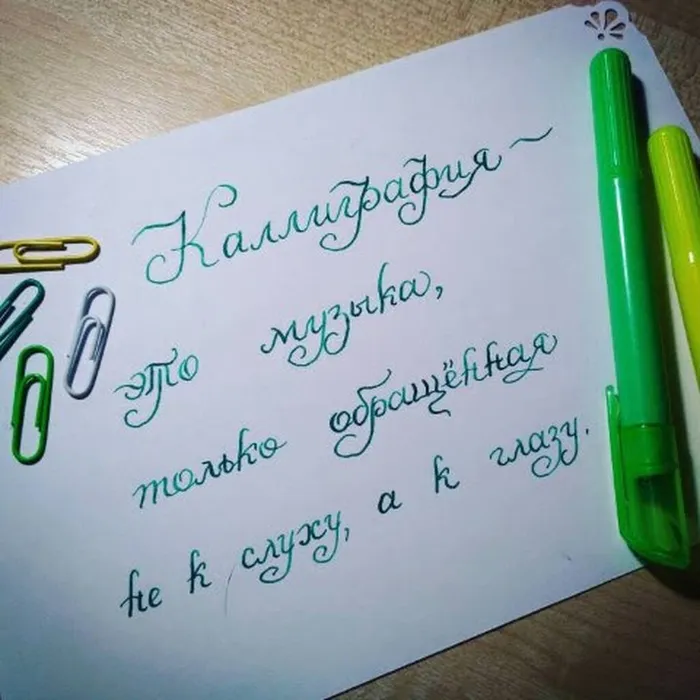 Каллиграфия ~
это музыка,
только обращённая
не к слуху, а к глазу.